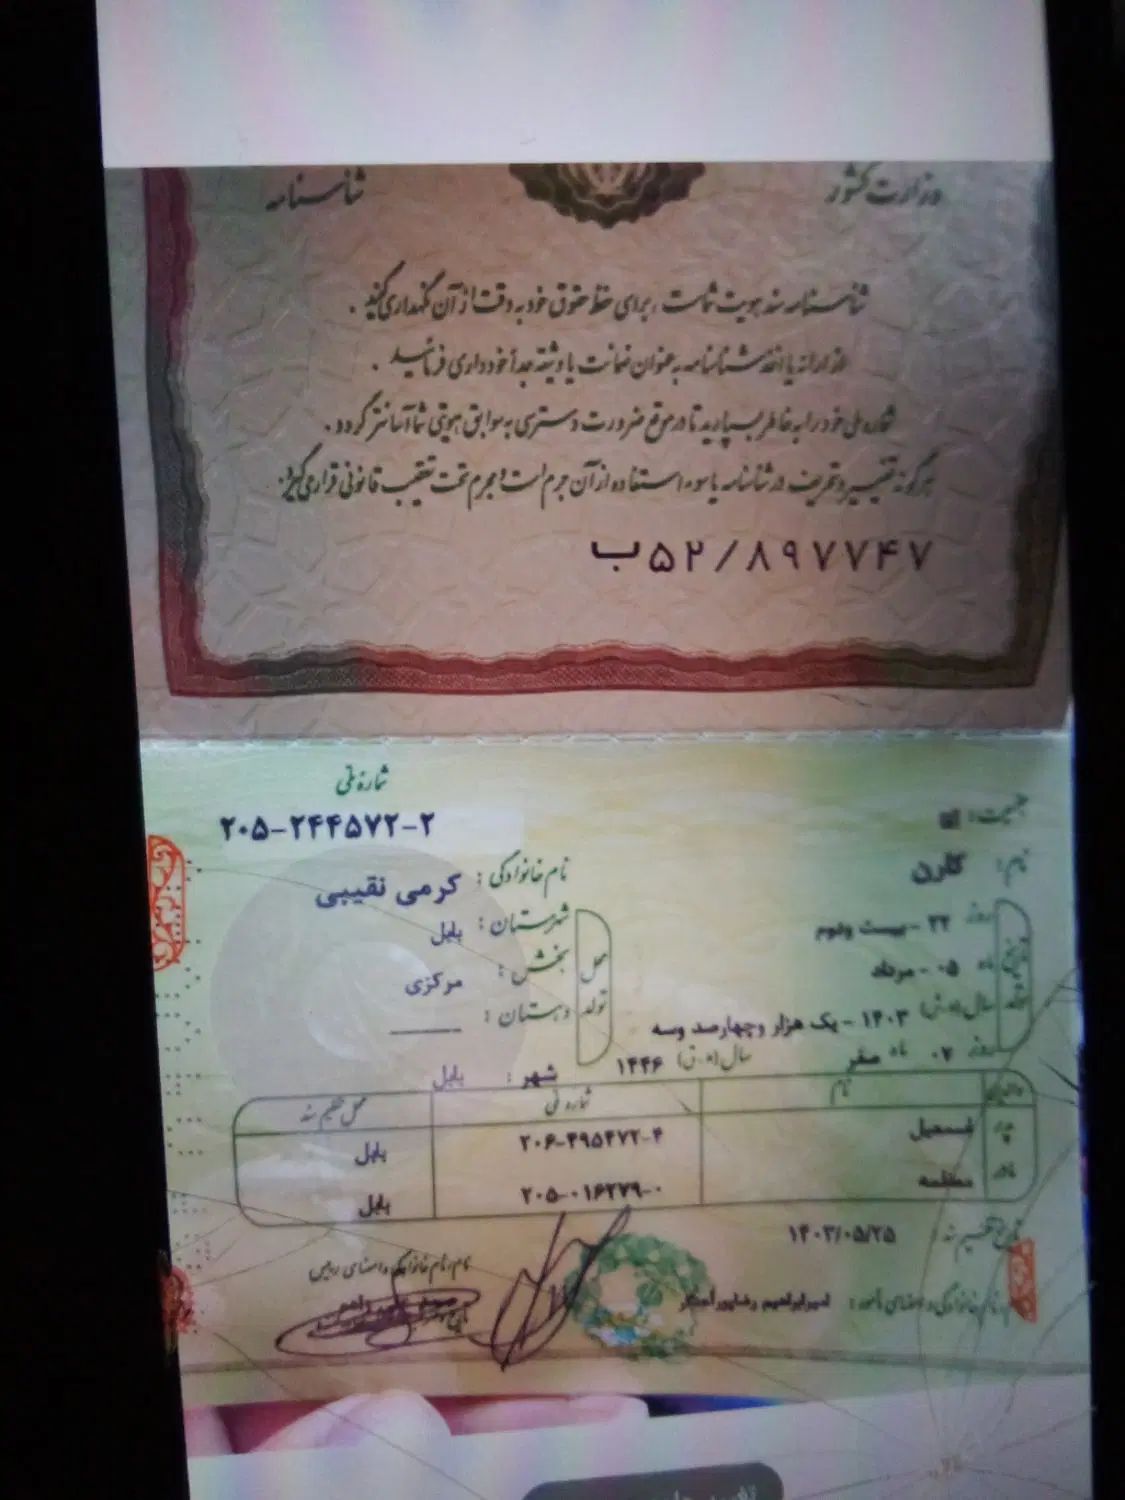 وزارت کشور
شناسنامه
شناسنامه سند هویت شماست ، برای حفظ حقوق خود به دقت از آن نگهداری کنید .
از ارائه یا اخذ شناسنامه به عنوان ضمانت یا وثیقه جداً خودداری فرمائید .
شماره ملی خود را به خاطر بسپارید تا در موقع ضرورت دسترسی به سوابق هویتی شما آسانتر گردد .
هرگونه تغییر و تحریف در شناسنامه یا سوء استفاده از آن جرم است و مجرم تحت تعقیب قانونی قرار می گیرد .
ب۵۲/۸۹۷۷۴۷
شماره ملی
۲۰۵-۲۴۴۵۷۲-۲
جنسیت:
نام: کارن
نام خانوادگی : کرمی نقیبی
روز ۲۲ - بیست ودوم
ماه ۰۵ - مرداد
سال (ه.ش) ۱۴۰۳ - یک هزار وچهارصد وسه
روز ۰۷ ماه صفر سال (ه.ق) ۱۴۴۶
محل تولد
شهرستان : بابل
بخش : مرکزی
دهستان :
شهر : بابل
نام شماره ملی محل تنظیم سند
پدر اسمعیل ۲۰۶-۴۹۵۴۷۲-۴ بابل
مادر ۲۰۵-۰۱۶۲۷۹-۰ بابل
تاریخ تنظیم سند : ۱۴۰۳/۰۵/۲۵
نام، نام خانوادگی و امضای مأمور : امیرابراهیم
نام، نام خانوادگی و امضای رییس